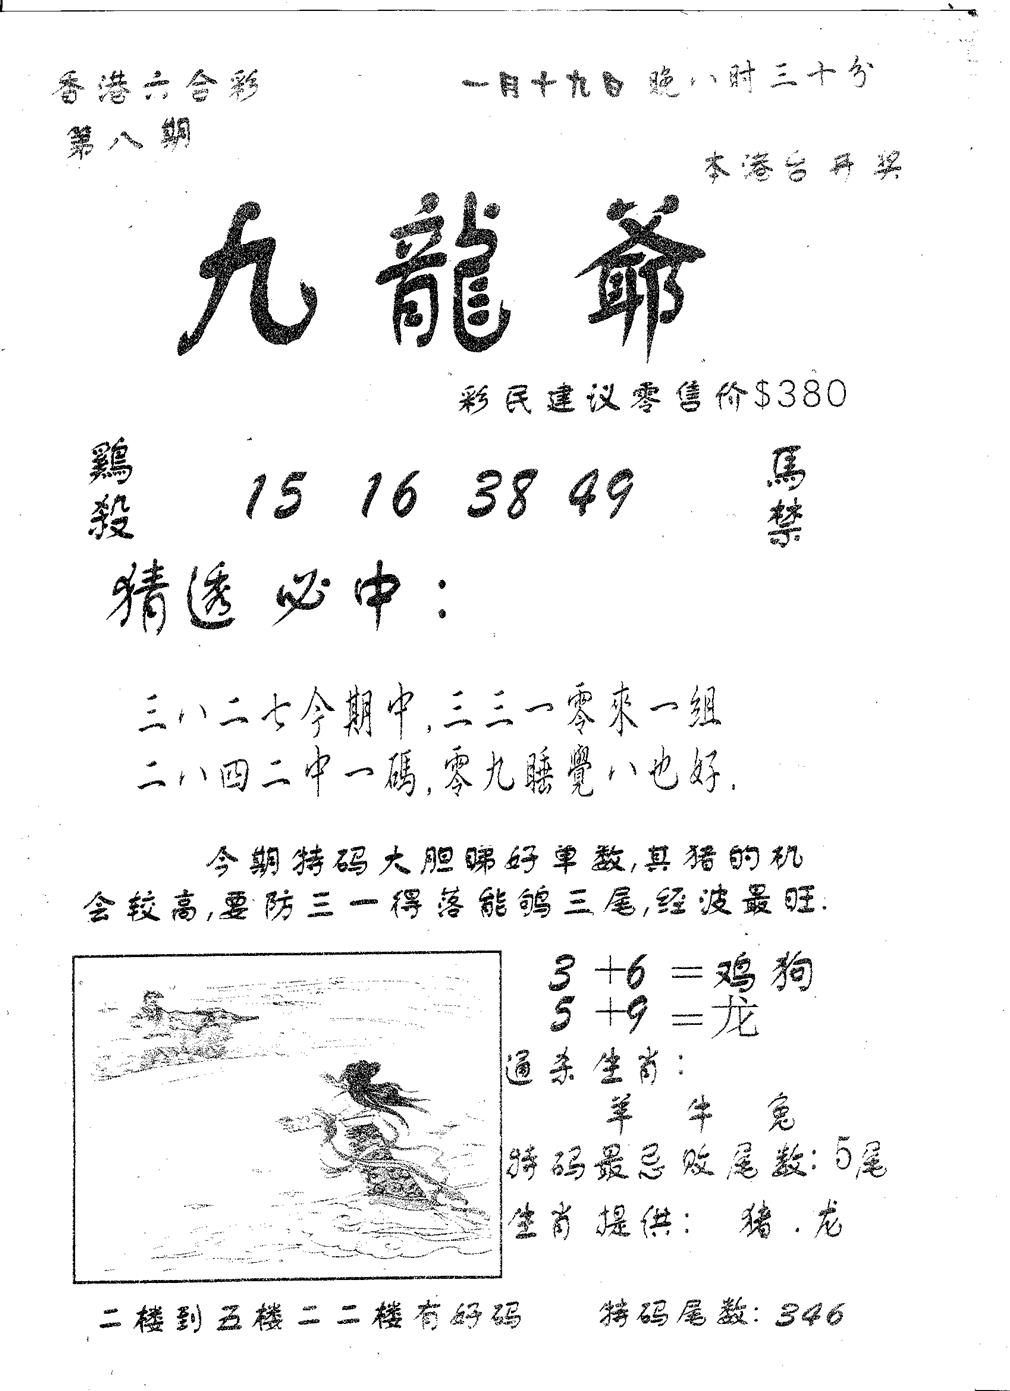 香港六合彩 一月十九日 晚八时三十分
第八期
本港台开奖
九龍爺
彩民建议零售价$380
鷄殺 15 16 38 49 馬禁
猜透必中：
三八二七今期中,三三一零來一組
二八四二中一碼,零九睡覺八也好.
今期特码大胆睇好单数,其猪的机
会较高,要防三一得落能鸲三尾,经波最旺.
3+6=鸡狗
5+9=龙
通杀生肖：
羊 牛 兔
特码最忌败尾数：5尾
生肖提供： 猪.龙
二楼到五楼二二楼有好码 特码尾数：346